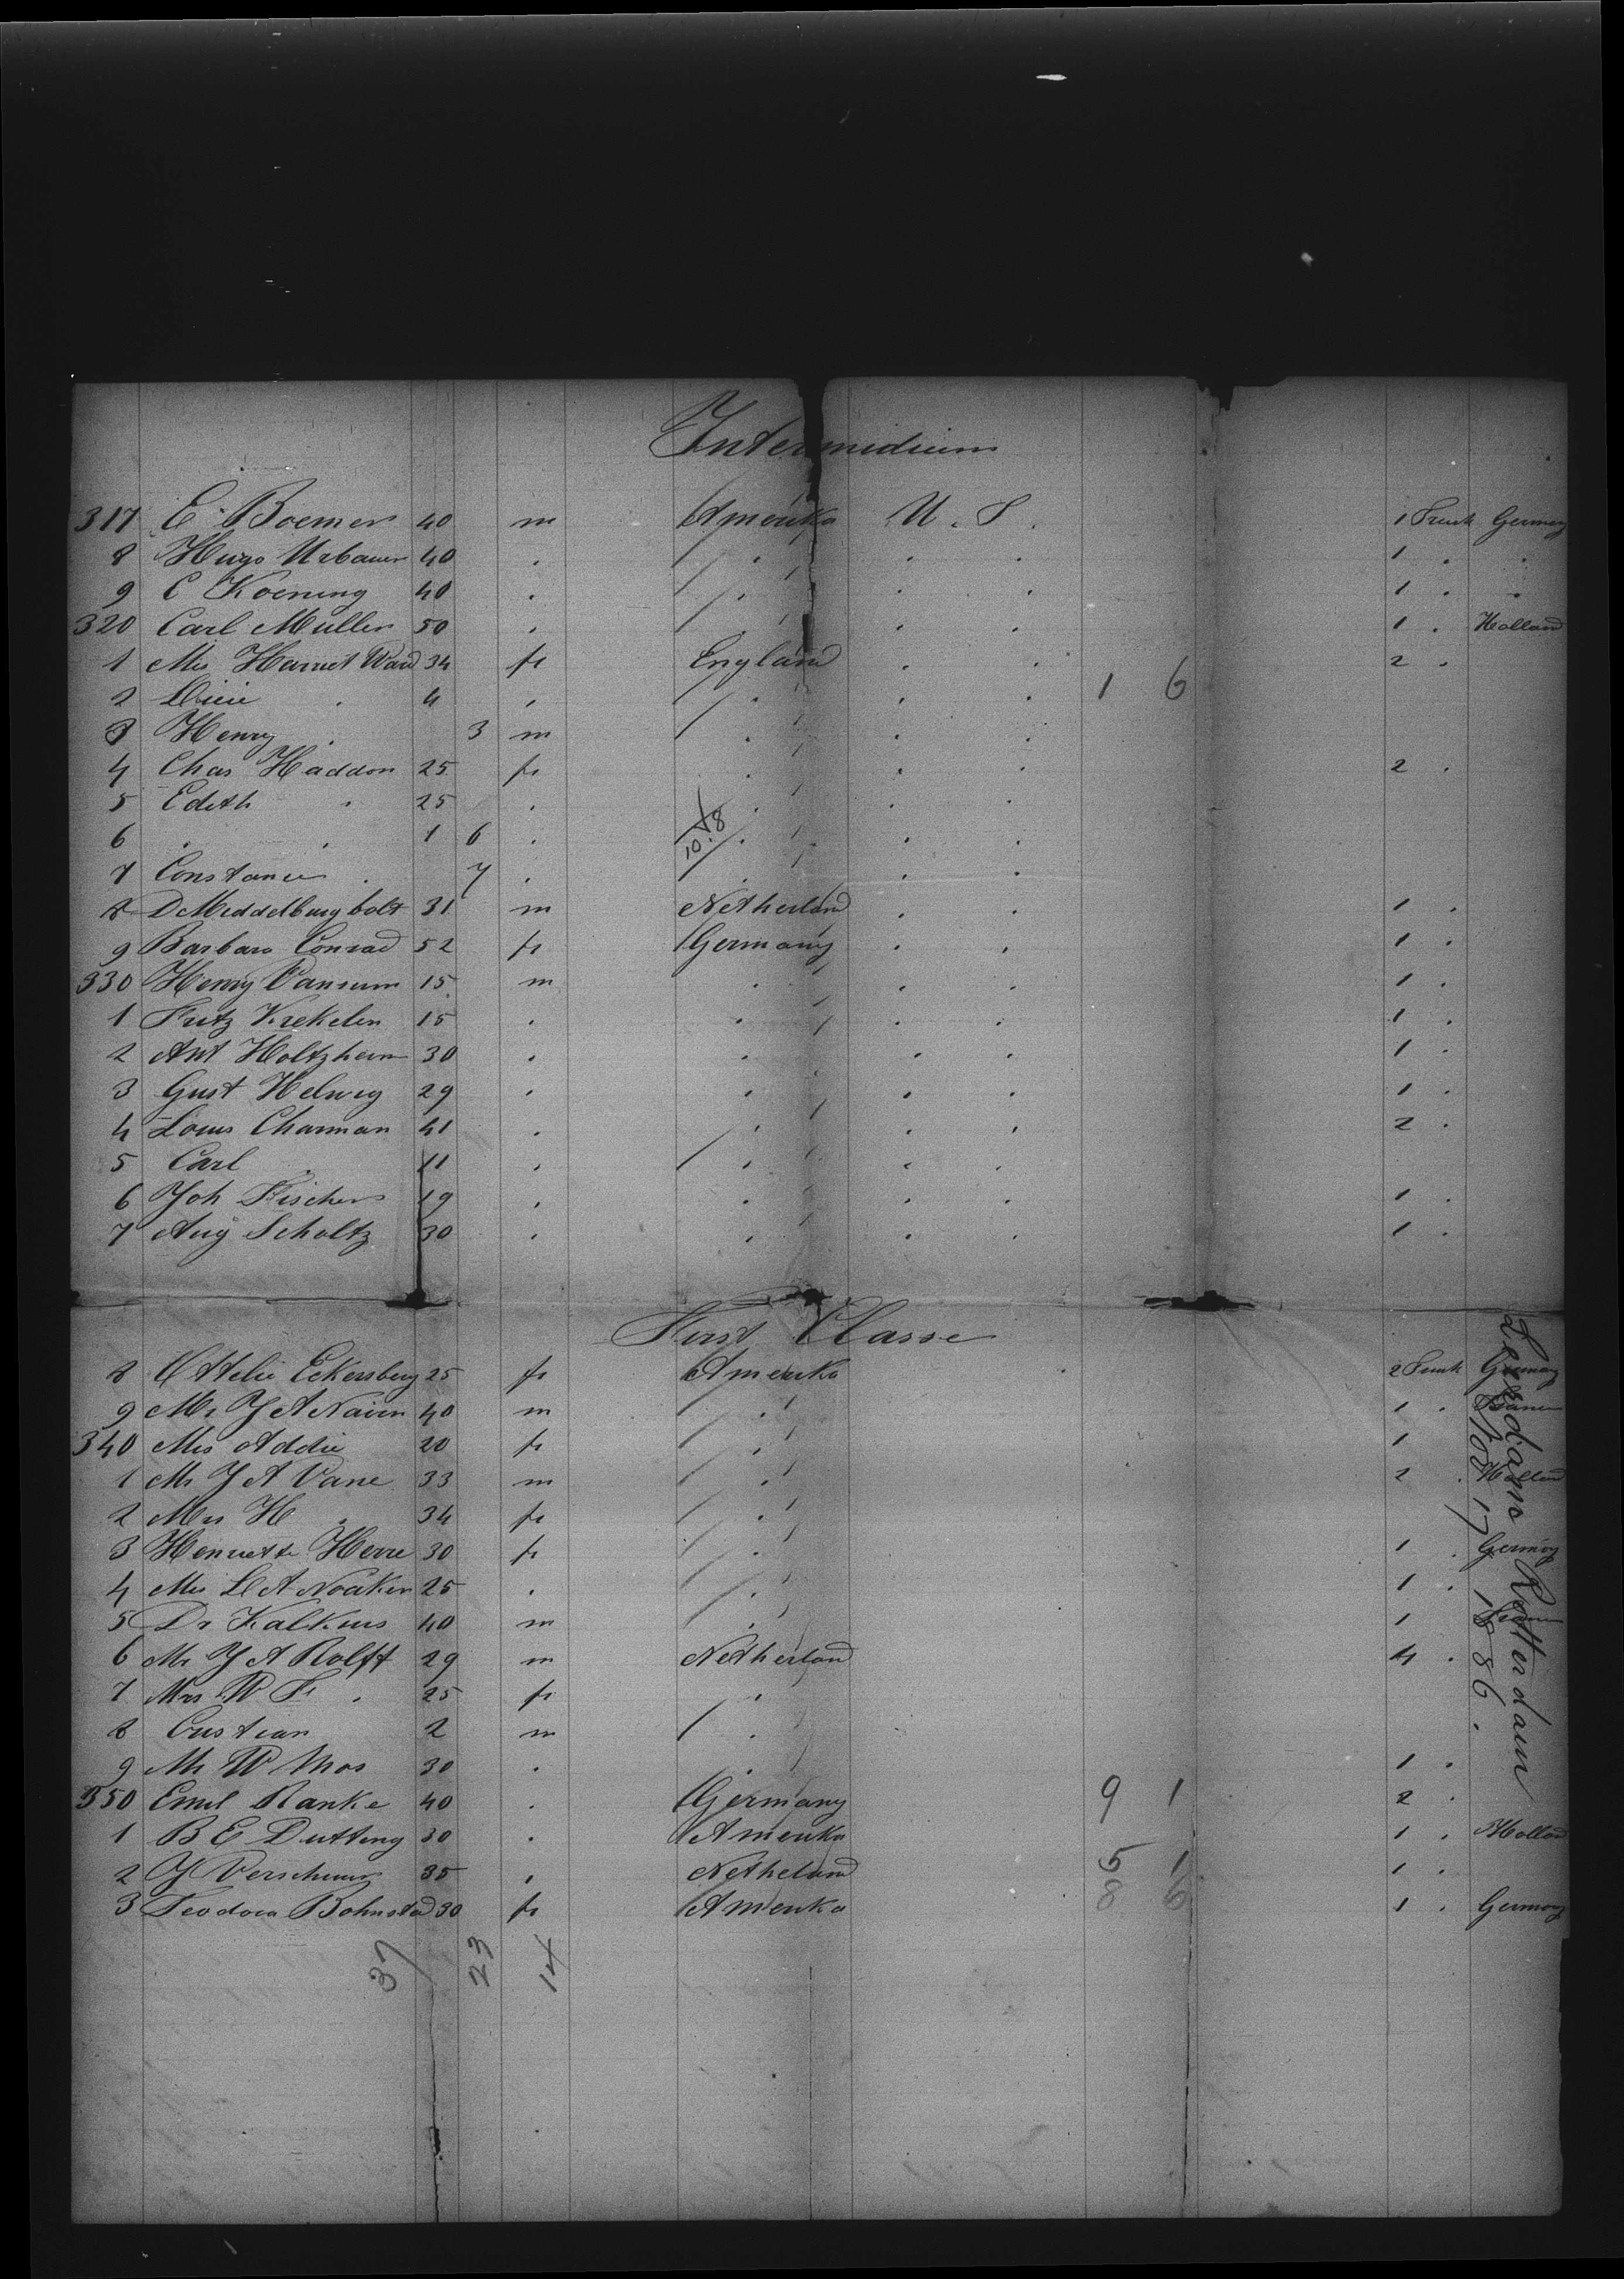 Intermidium
317 E. Boemer 40 m Amerika U. S. 1 Trunk Germany
8 Hugo Urbauer 40 . . . . 1 . .
9 C Koening 40 . . . . 1 . .
320 Carl Muller 50 . . . . 1 . Holland
1 Mrs Harriet Ward 34 fr England . . 2 .
2 . 4 . . . . 1 6
3 Henry . 3 m . . .
4 Chas Haddon 25 fr . . . 2 .
5 Edith . 25 . . . .
6 . . 1 6 . . . .
7 Constance . 7 . . . .
8 D Meddelburg bolt 31 m Netherland . . 1 .
9 Barbara Conrad 52 fr Germany . . 1 .
330 Henry Vansum 15 m . . . 1 .
1 Fritz Krekeler 15 . . . . 1 .
2 Ant Holtzheim 30 . . . . 1 .
3 Gust Helwig 29 . . . . 1 .
4 Louis Charman 41 . . . . 2 .
5 Carl . 11 . . . .
6 Joh Fischer 19 . . . . 1 .
7 Aug Scholtz 30 . . . . 1 .
First Classe
8 Ottelie Eckersberg 25 fr Amerika 2 Trunk Germany
9 Mr J A Nairn 40 m . 1 .
340 Mrs Addie 20 fr . 1
1 Mr J A Vane 33 m . 2 . Holland
2 Mrs H . 34 fr .
3 Henriette Herre 30 fr . 1 . Germany
4 Mrs L A Noaker 25 . . 1 .
5 Dr Kalkins 40 m . 1
6 Mr J A Rolff 29 m Netherland 4 .
7 Mrs W F . 25 fr .
8 Cristian 2 m .
9 Mr W Mos 30 . . 1 .
350 Emil Ranke 40 . Germany 9 1 2 .
1 B E Dutting 30 . Amerika 1 . Holland
2 J Verschuur 35 . Netheland 5 1 1 .
3 Teodora Bohnsted 30 fr Amerika 8 6 1 . Germany
37 23 14
Leerdam Rotterdam
17 1886.